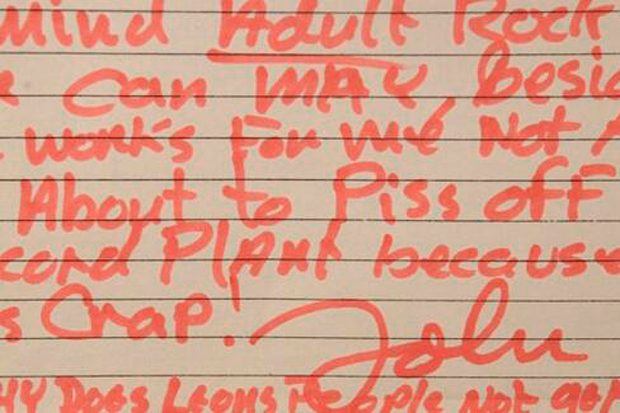 mind Adult Rock
can MAX, besid
works for me Not
About to Piss off
cord PlAnt because
s Crap! John
HY Does Leons People Not get